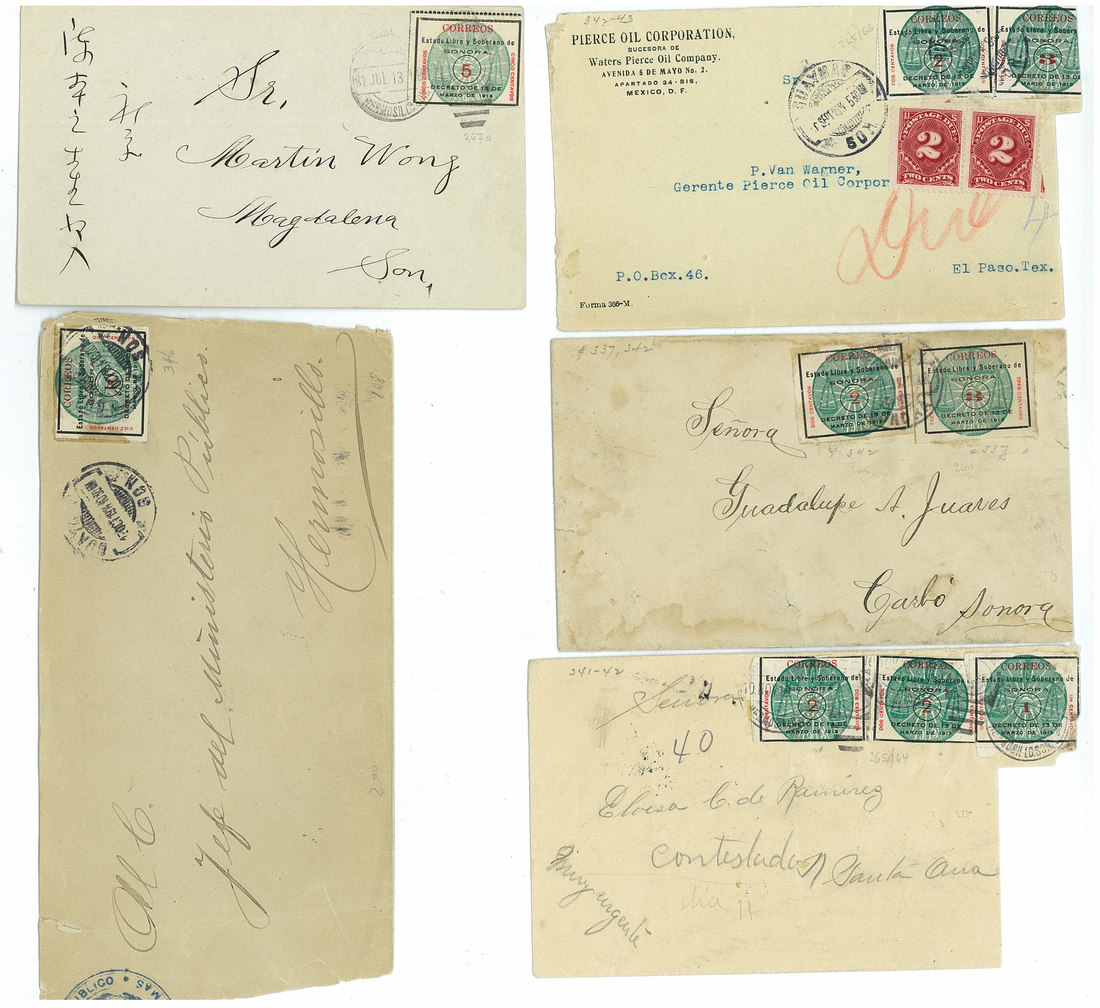 Sr,
Martin Wong
Magdalena
Son,
JUL 13
CORREOS
Estado Libre y Soberano de
SONORA
5
DECRETO DE 13 DE
MARZO DE 1913
CINCO CENTAVOS
CINCO CENTAVOS
267a
342-43
PIERCE OIL CORPORATION,
SUCESORA DE
Waters Pierce Oil Company.
AVENIDA 5 DE MAYO No. 2.
APARTADO 34-BIS.
MEXICO, D. F.
265/66
Sr
CORREOS
Estado Libre y Soberano de
SONORA
2
DECRETO DE 13 DE
MARZO DE 1913
DOS CENTAVOS
CORREOS
Estado Libre y Soberano de
SONORA
3
DECRETO DE 13 DE
MARZO DE 1913
GUAYMAS
SON
POSTAGE DUE
2
TWO CENTS
POSTAGE DUE
2
TWO CENTS
P.Van Wagner,
Gerente Pierce Oil Corpor
Due
4
P.O.Box.46.
El Paso.Tex.
Forma 366-M.
CORREOS
Estado Libre y Soberano de
DIEZ CENTAVOS
SON
GUAY
SON
Al C.
Jefe del Ministerio Público.
Hermosillo.
168
BLICO • MAS
#337,342
CORREOS
Estado Libre y Soberano de
SONORA
2
DECRETO DE 13 DE
MARZO DE 1913
DOS CENTAVOS
CORREOS
Estado Libre y Soberano de
SONORA
3
DECRETO DE 13 DE
MARZO DE 1913
TRES CENTAVOS
342
#337
Señora
Guadalupe A. Juares
Carbó Sonora
341-42
CORREOS
Estado Libre y Soberano de
SONORA
2
DECRETO DE 13 DE
MARZO DE 1913
DOS CENTAVOS
CORREOS
Estado Libre y Soberano de
SONORA
2
DECRETO DE 13 DE
MARZO DE 1913
DOS CENTAVOS
CORREOS
Estado Libre y Soberano de
SONORA
1
DECRETO DE 13 DE
MARZO DE 1913
UN CENTAVO
265/64
Señora
40
Eloisa C. de Ramirez
Contestada
Santa Ana
Muy urgente
dia 11